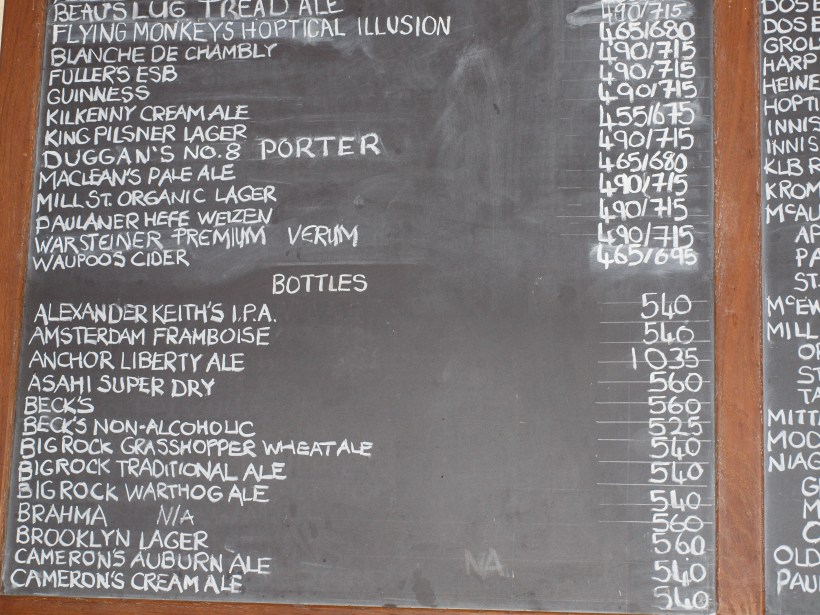 BEAU'S LUG TREAD ALE 490/715
FLYING MONKEYS HOPTICAL ILLUSION 465/680
BLANCHE DE CHAMBLY 490/715
FULLER'S ESB 490/715
GUINNESS 490/715
KILKENNY CREAM ALE 455/675
KING PILSNER LAGER 490/715
DUGGAN'S NO.8 PORTER 465/680
MACLEAN'S PALE ALE 490/715
MILL ST. ORGANIC LAGER 490/715
PAULANER HEFE WEIZEN 490/715
WARSTEINER PREMIUM VERUM 465/695
WAUPOO'S CIDER
BOTTLES
ALEXANDER KEITH'S I.P.A. 540
AMSTERDAM FRAMBOISE 540
ANCHOR LIBERTY ALE 1035
ASAHI SUPER DRY 560
BECK'S 560
BECK'S NON-ALCOHOLIC 525
BIG ROCK GRASSHOPPER WHEAT ALE 540
BIG ROCK TRADITIONAL ALE 540
BIG ROCK WARTHOG ALE 540
BRAHMA N/A 560
BROOKLYN LAGER 560
CAMERON'S AUBURN ALE NA 540
CAMERON'S CREAM ALE 540
DOS E
DOS E
GROL
HARP
HEINE
HOPTI
INNIS
INNIS
KLB R
KROM
McAU
AP
PA
ST.
McEW
MILL
OR
ST
TA
MITTA
MOO
NIAG
G
M
O
OLD
PAUL